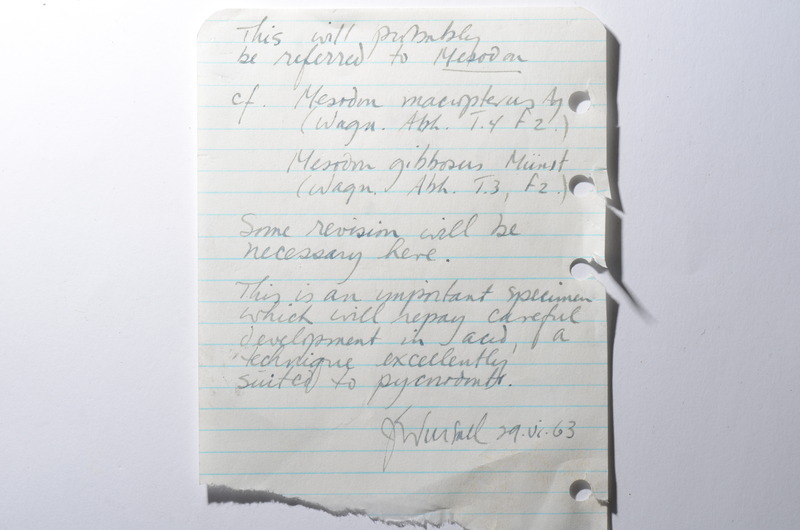 This will probably
be referred to Mesodon
cf. Mesodon macropterus Ag
(Wagn. Abh. T.4 f2.)
Mesodon gibbosus Münst
(Wagn. Abh. T.3, f2.)
Some revision will be
necessary here.
This is an important specimen
which will repay careful
development in acid, a
technique excellently
suited to pycnodonts.
29.vi.63